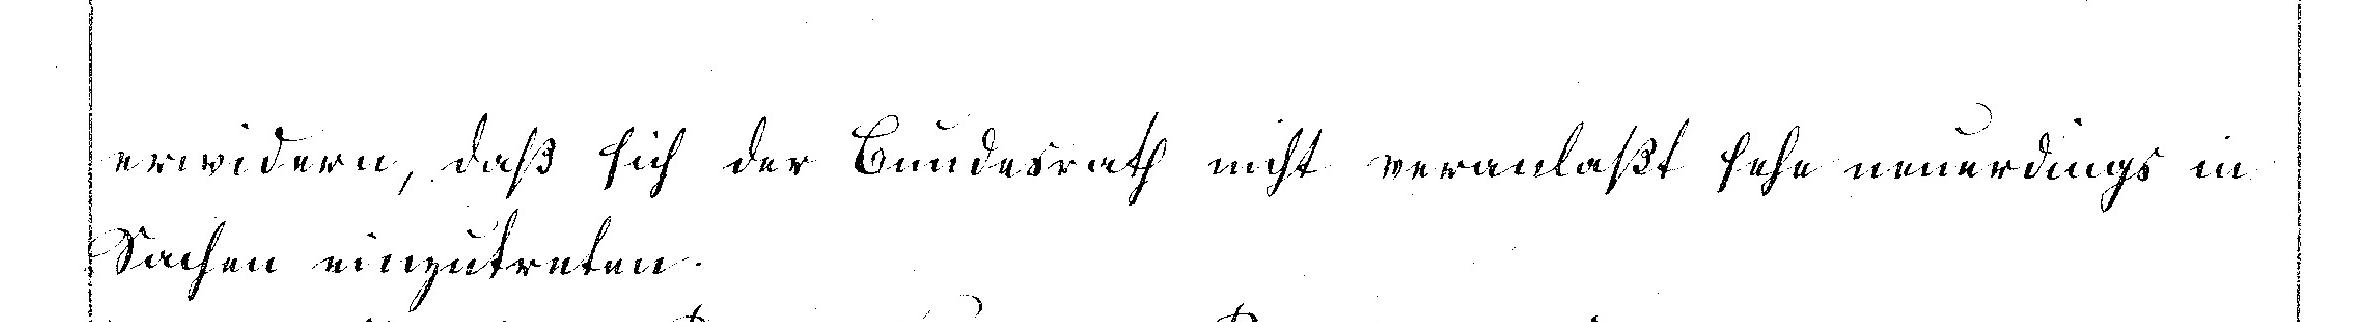 erwidern, daß sich der Bundesrath nicht veranlaßt sehe neuerdings in
Sachen einzutreten.